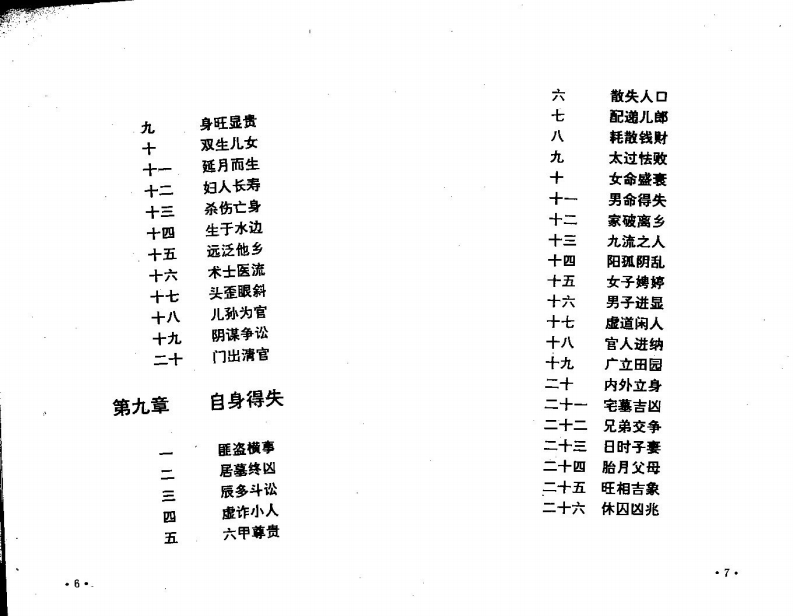 九 身旺显贵
十 双生儿女
十一 延月而生
十二 妇人长寿
十三 杀伤亡身
十四 生于水边
十五 远泛他乡
十六 术士医流
十七 头歪眼斜
十八 儿孙为官
十九 阴谋争讼
二十 门出清官
第九章 自身得失
一 匪盗横事
二 居墓终凶
三 辰多斗讼
四 虚诈小人
五 六甲尊贵
·6·
六 散失人口
七 配递儿郎
八 耗散钱财
九 太过怯败
十 女命盛衰
十一 男命得失
十二 家破离乡
十三 九流之人
十四 阳孤阴乱
十五 女子娉婷
十六 男子进显
十七 虚道闲人
十八 官人进纳
十九 广立田园
二十 内外立身
二十一 宅墓吉凶
二十二 兄弟交争
二十三 日时子妻
二十四 胎月父母
二十五 旺相吉象
二十六 休囚凶兆
·7·